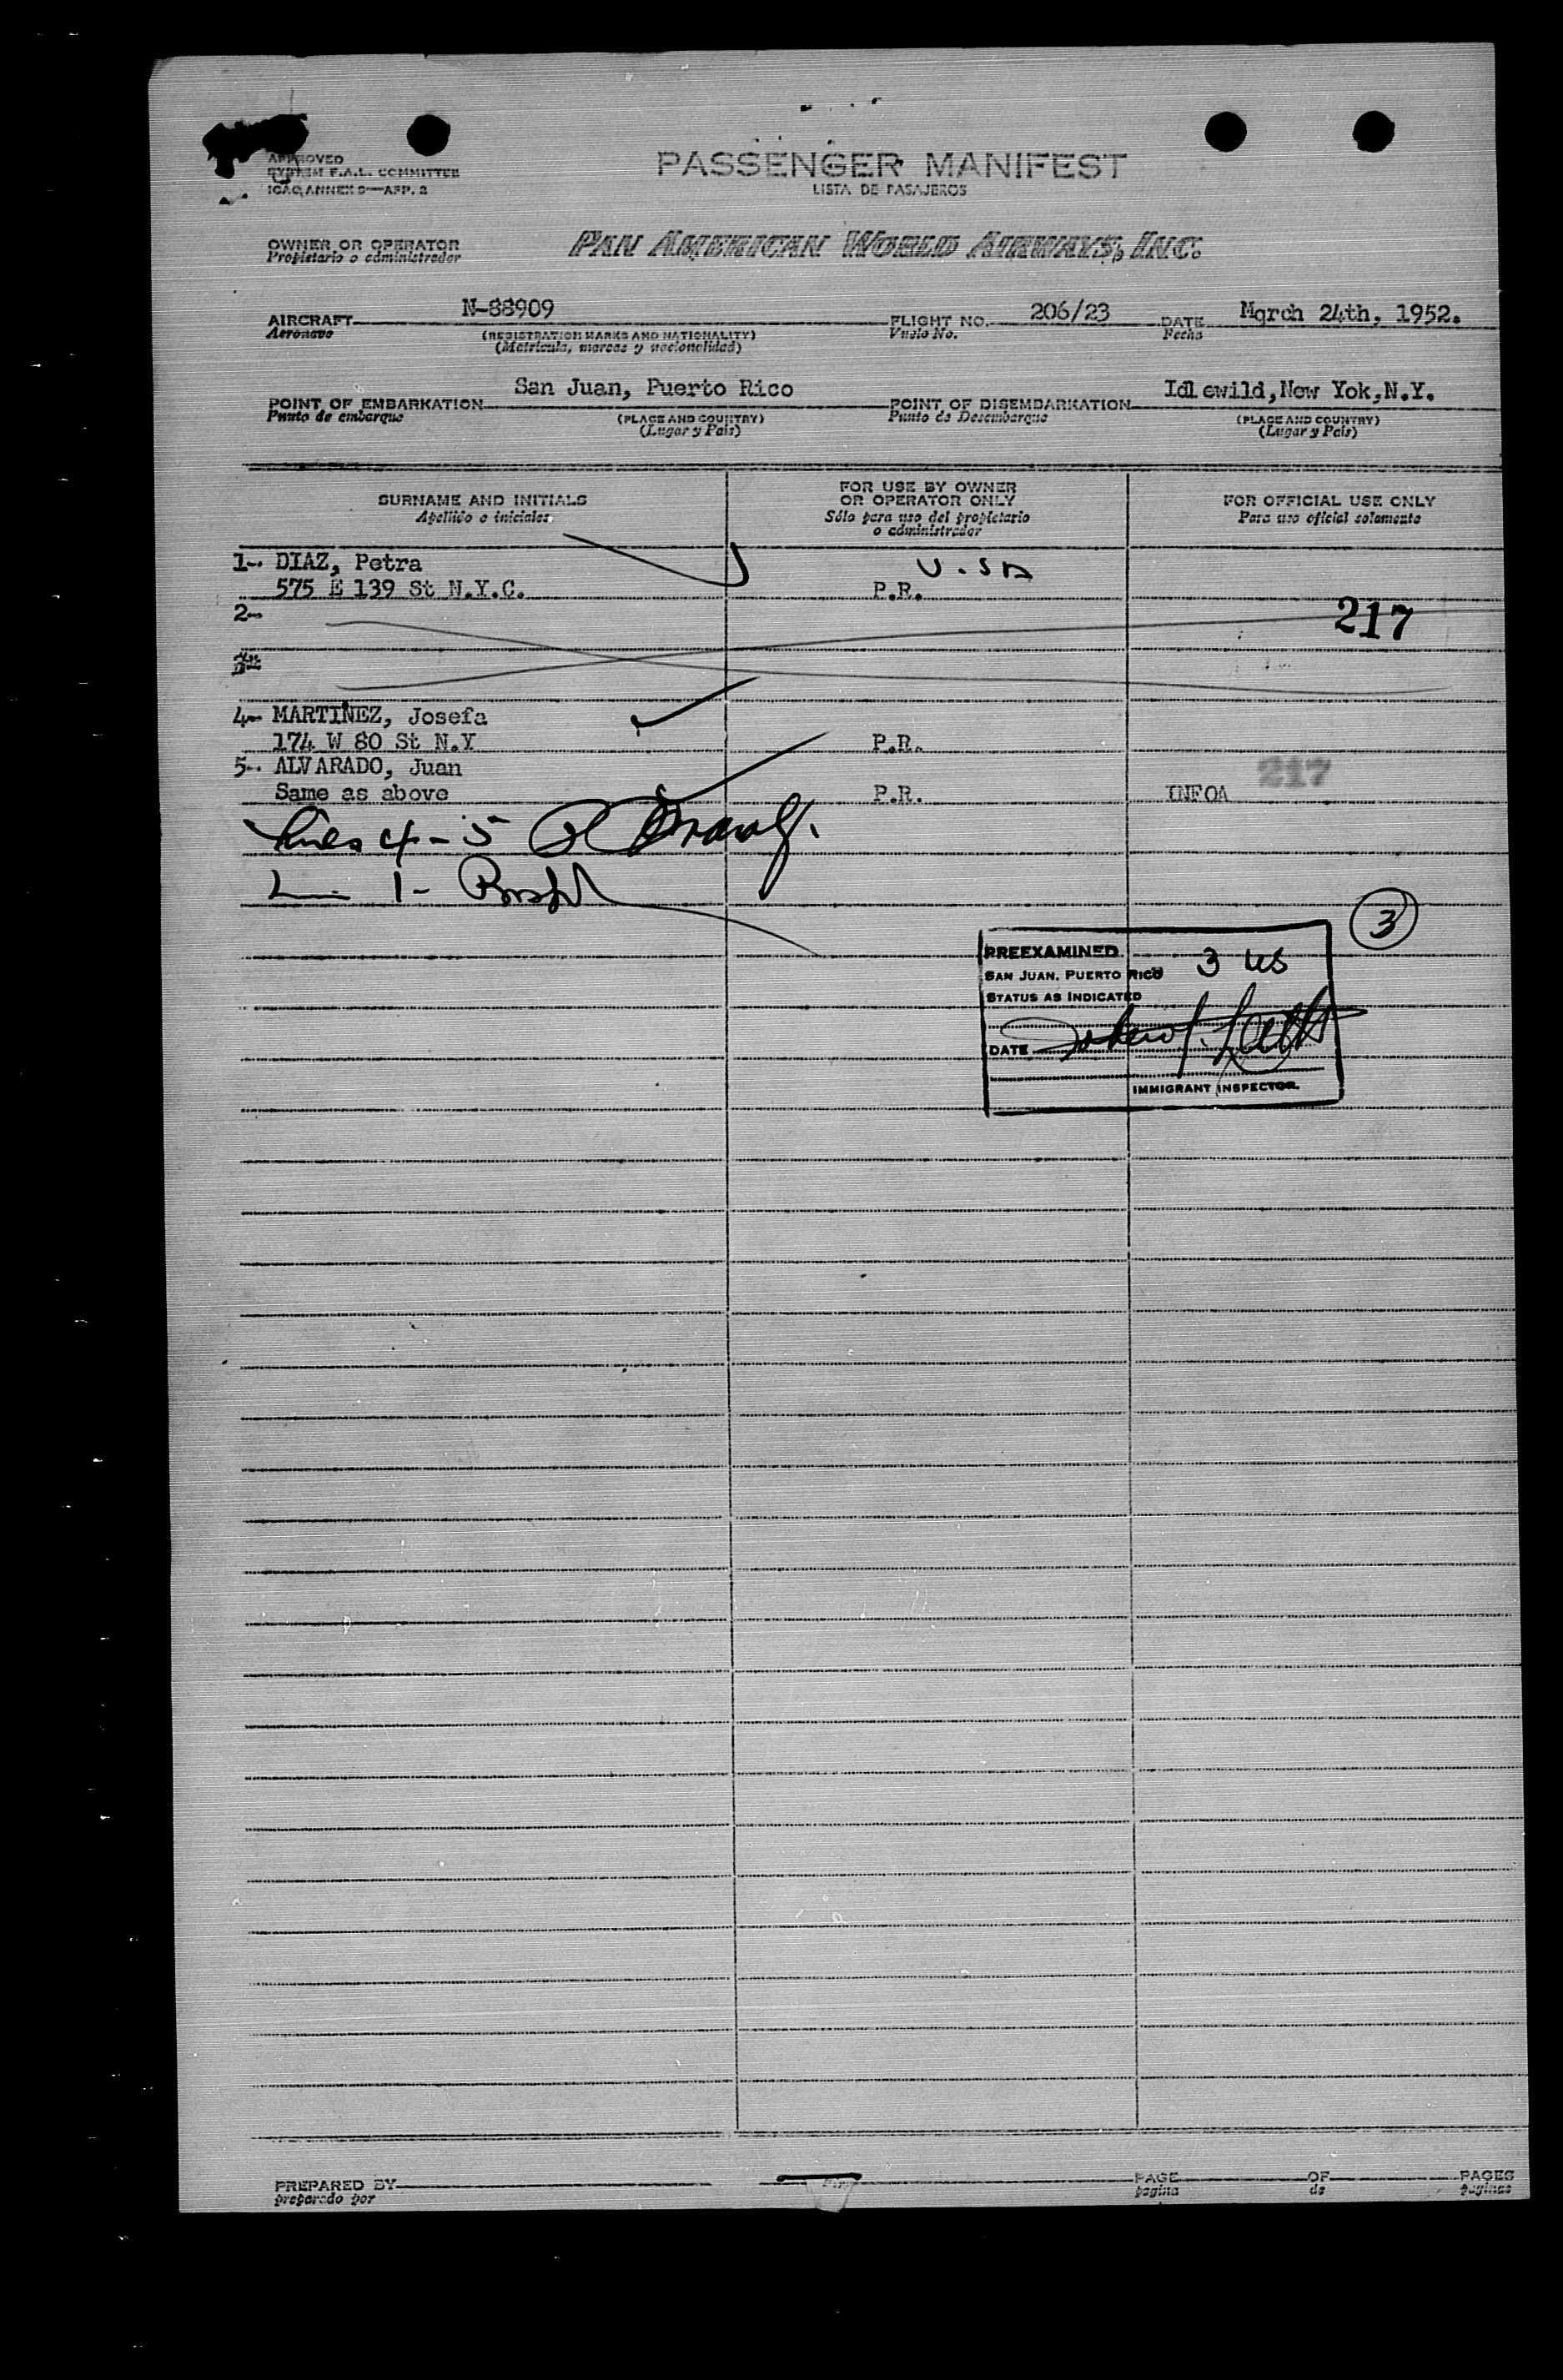 APPROVED
SYSTEM F.A.L. COMMITTEE
ICAO ANNEX 9—APP. 2
PASSENGER MANIFEST
LISTA DE PASAJEROS
OWNER OR OPERATOR
Propietario o administrador
PAN AMERICAN WORLD AIRWAYS, INC.
AIRCRAFT N-88909 FLIGHT NO. 206/23 DATE Mqrch 24th, 1952.
Aeronave (REGISTRATION MARKS AND NATIONALITY) Vuelo No. Fecha
(Matrícula, marcas y nacionalidad)
POINT OF EMBARKATION San Juan, Puerto Rico POINT OF DISEMBARKATION Idlewild,New Yok,N.Y.
Punto de embarque (PLACE AND COUNTRY) Punto de Desembarque (PLACE AND COUNTRY)
(Lugar y País) (Lugar y País)
SURNAME AND INITIALS FOR USE BY OWNER OR OPERATOR ONLY FOR OFFICIAL USE ONLY
Apellido e iniciales Sólo para uso del propietario o administrador Para uso oficial solamente
1-. DIAZ, Petra U.SA
575 E 139 St N.Y.C. P.R.
2- 217
4- MARTINEZ, Josefa
174 W 80 St N.Y P.R.
5-. ALVARADO, Juan 217
Same as above P.R. INFOA
Lines 4-5
1-
3
PREEXAMINED
SAN JUAN, PUERTO RICO 3 US
STATUS AS INDICATED
DATE
IMMIGRANT INSPECTOR
PREPARED BY PAGE OF PAGES
preparado por página de páginas